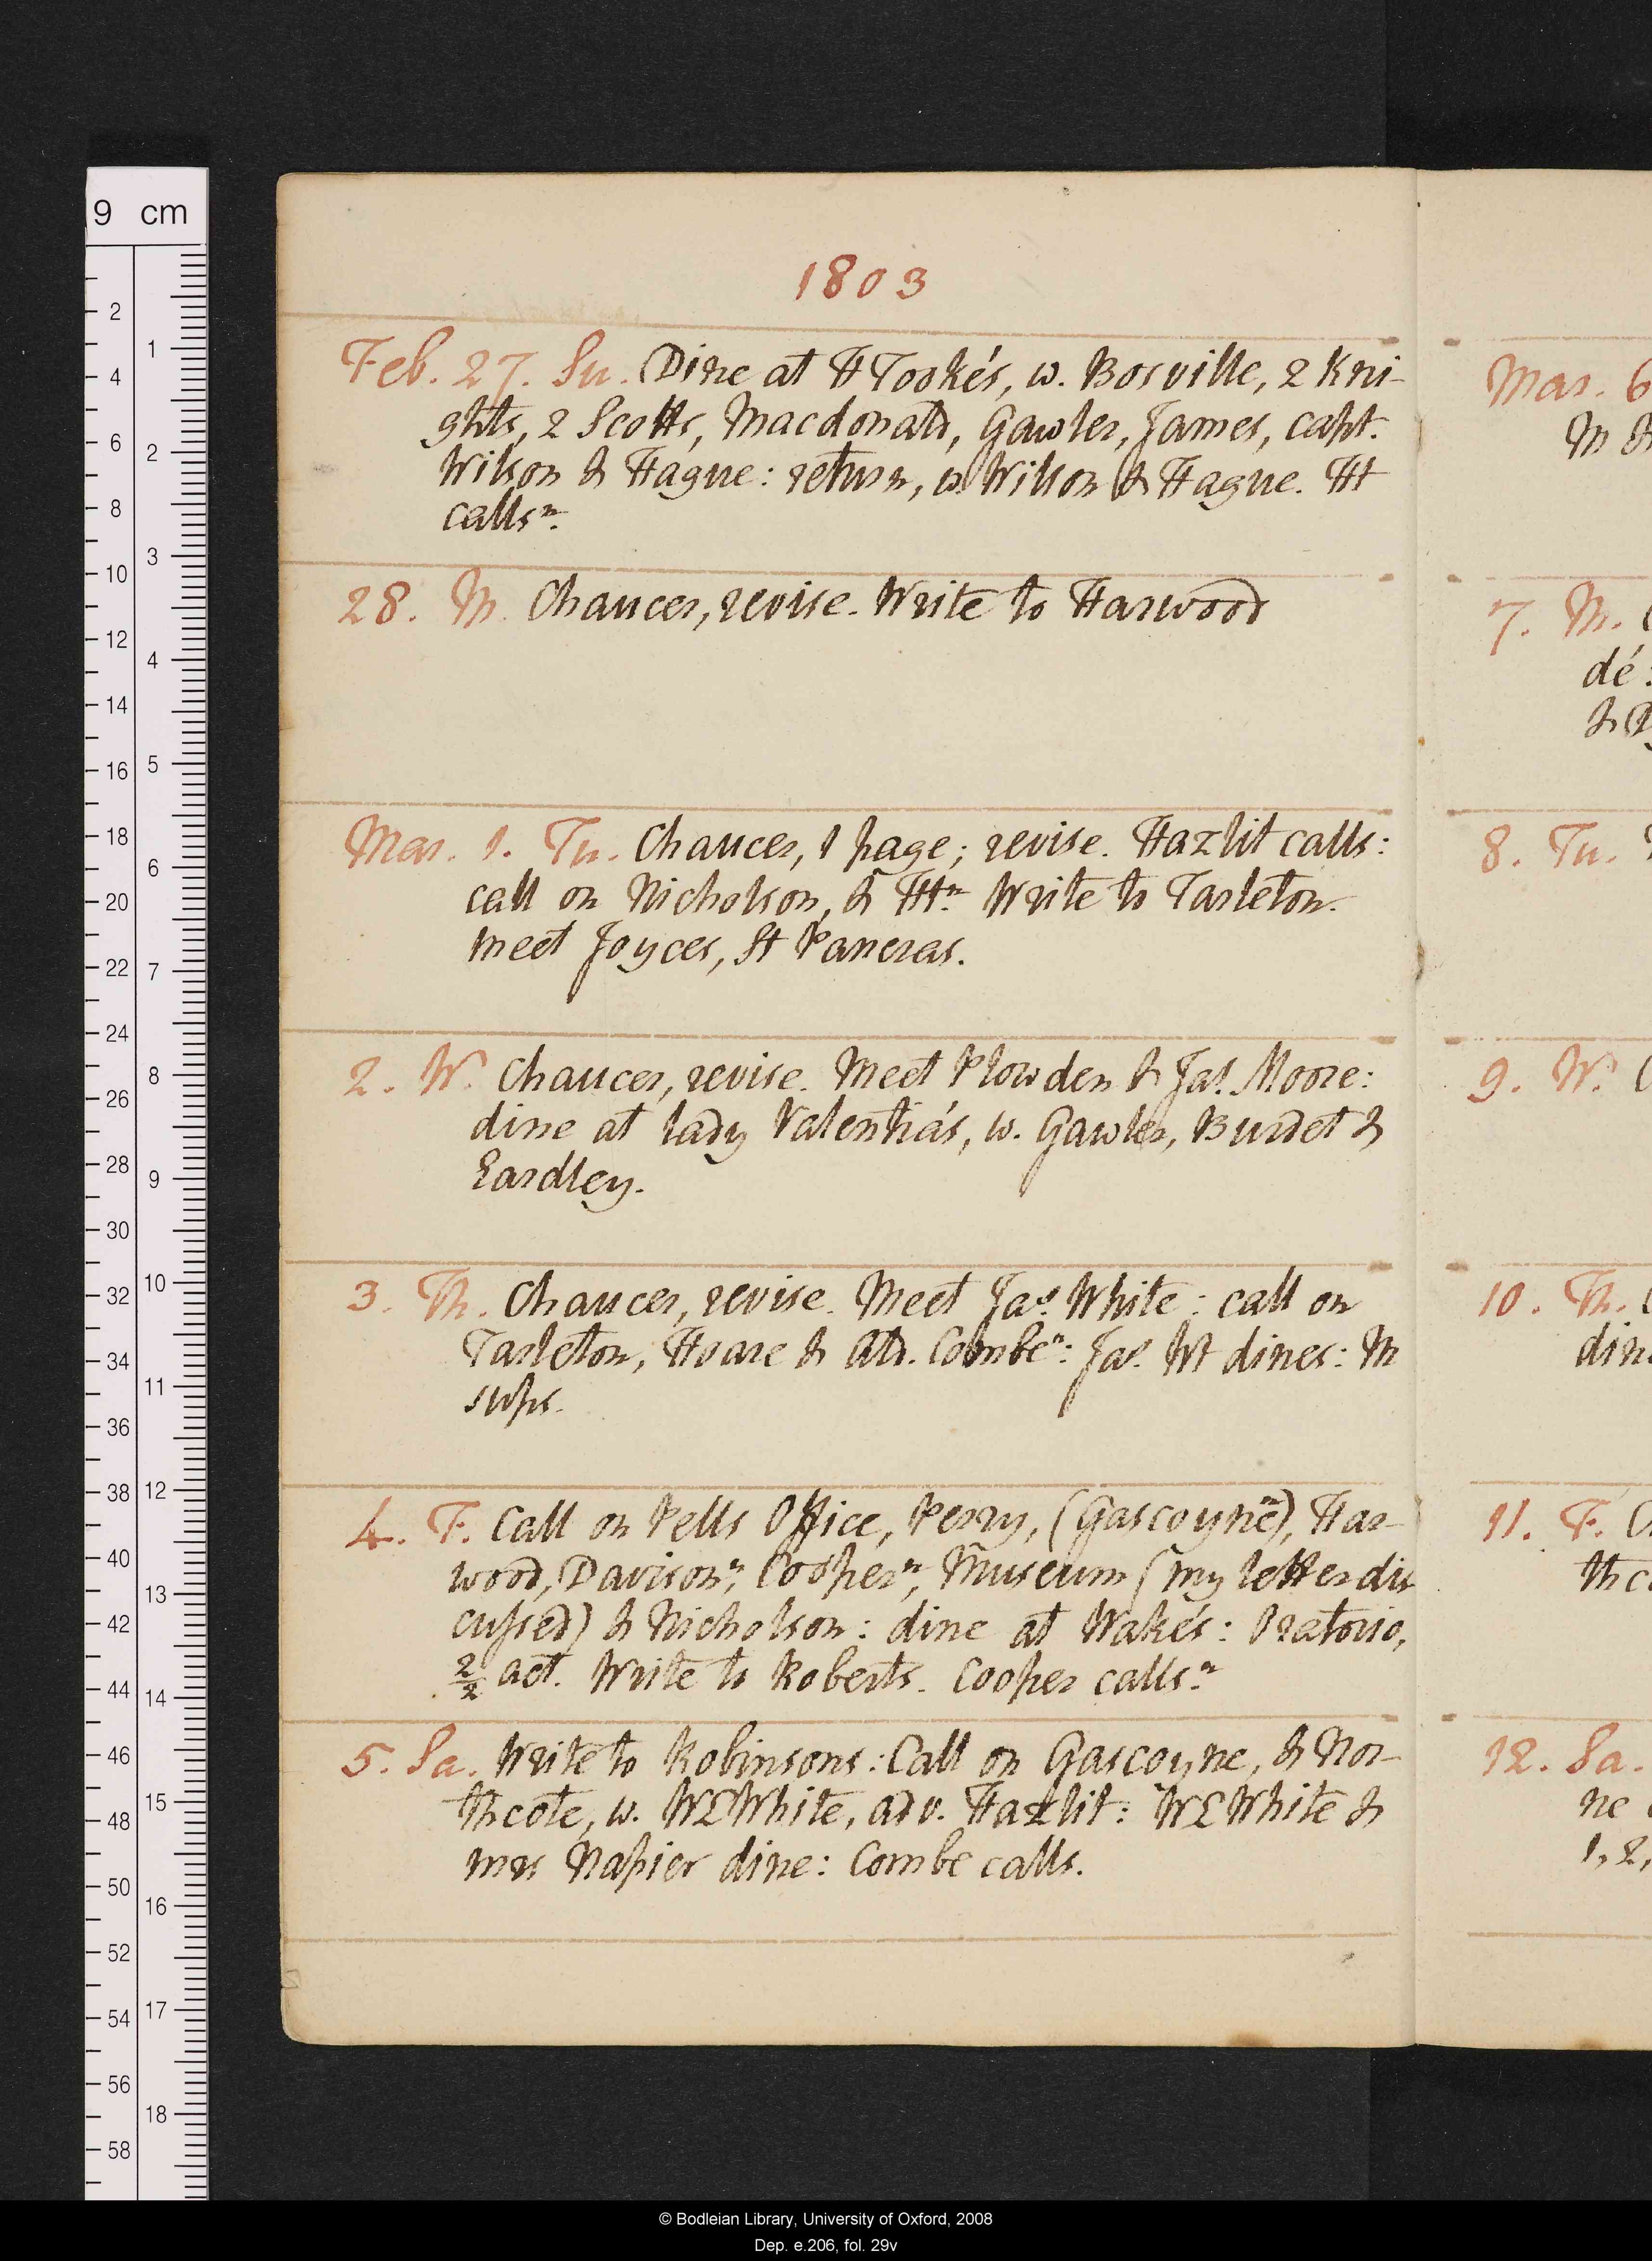 1803
Feb. 27. Su. Dine at H Tooke's, w. Bosville, 2 Kni-
ghts, 2 Scotts, Macdonald, Gawler, James, capt.
Wilson & Hague: return, w. Wilson & Hague. Ht
calls n.
28. M. Chaucer, revise. Write to Harwood
Mar. 1. Tu. Chaucer, 1 page; revise. Hazlit calls:
call on Nicholson, & Ht n. Write to Tarleton.
Meet Joyces, St Pancras.
2. W. Chaucer, revise. Meet Plowden & Jas. Moore:
dine at lady Valentia's, w. Gawler, Burdet &
Eardley.
3. Th. Chaucer, revise. Meet Jas. White: call on
Tarleton, Hoare & Ald. Combe n: Jas. Wt dines: M
sups.
4. F. Call on Pells Office, Perry, (Gascoyne n), Har-
wood, Davison n, Cooper n, Museum (my letter dis
cussed) & Nicholson: dine at Wake's: Oratorio,
2/2 act. Write to Roberts. Cooper calls n.
5. Sa. Write to Robinsons: Call on Gascoyne, & Nor-
thcote, w. W E White, adv. Hazlit: W E White &
mrs Napier dine: Combe calls.
Mar. 6
M &
7. M. C
dé:
&
8. Tu.
9. W. C
10. Th. C
din
11. F. C
thco
12. Sa.
ne
1, 2,
9 cm
2
4
6
8
10
12
14
16
18
20
22
24
26
28
30
32
34
36
38
40
42
44
46
48
50
52
54
56
58
1
2
3
4
5
6
7
8
9
10
11
12
13
14
15
16
17
18
© Bodleian Library, University of Oxford, 2008
Dep. e.206, fol. 29v